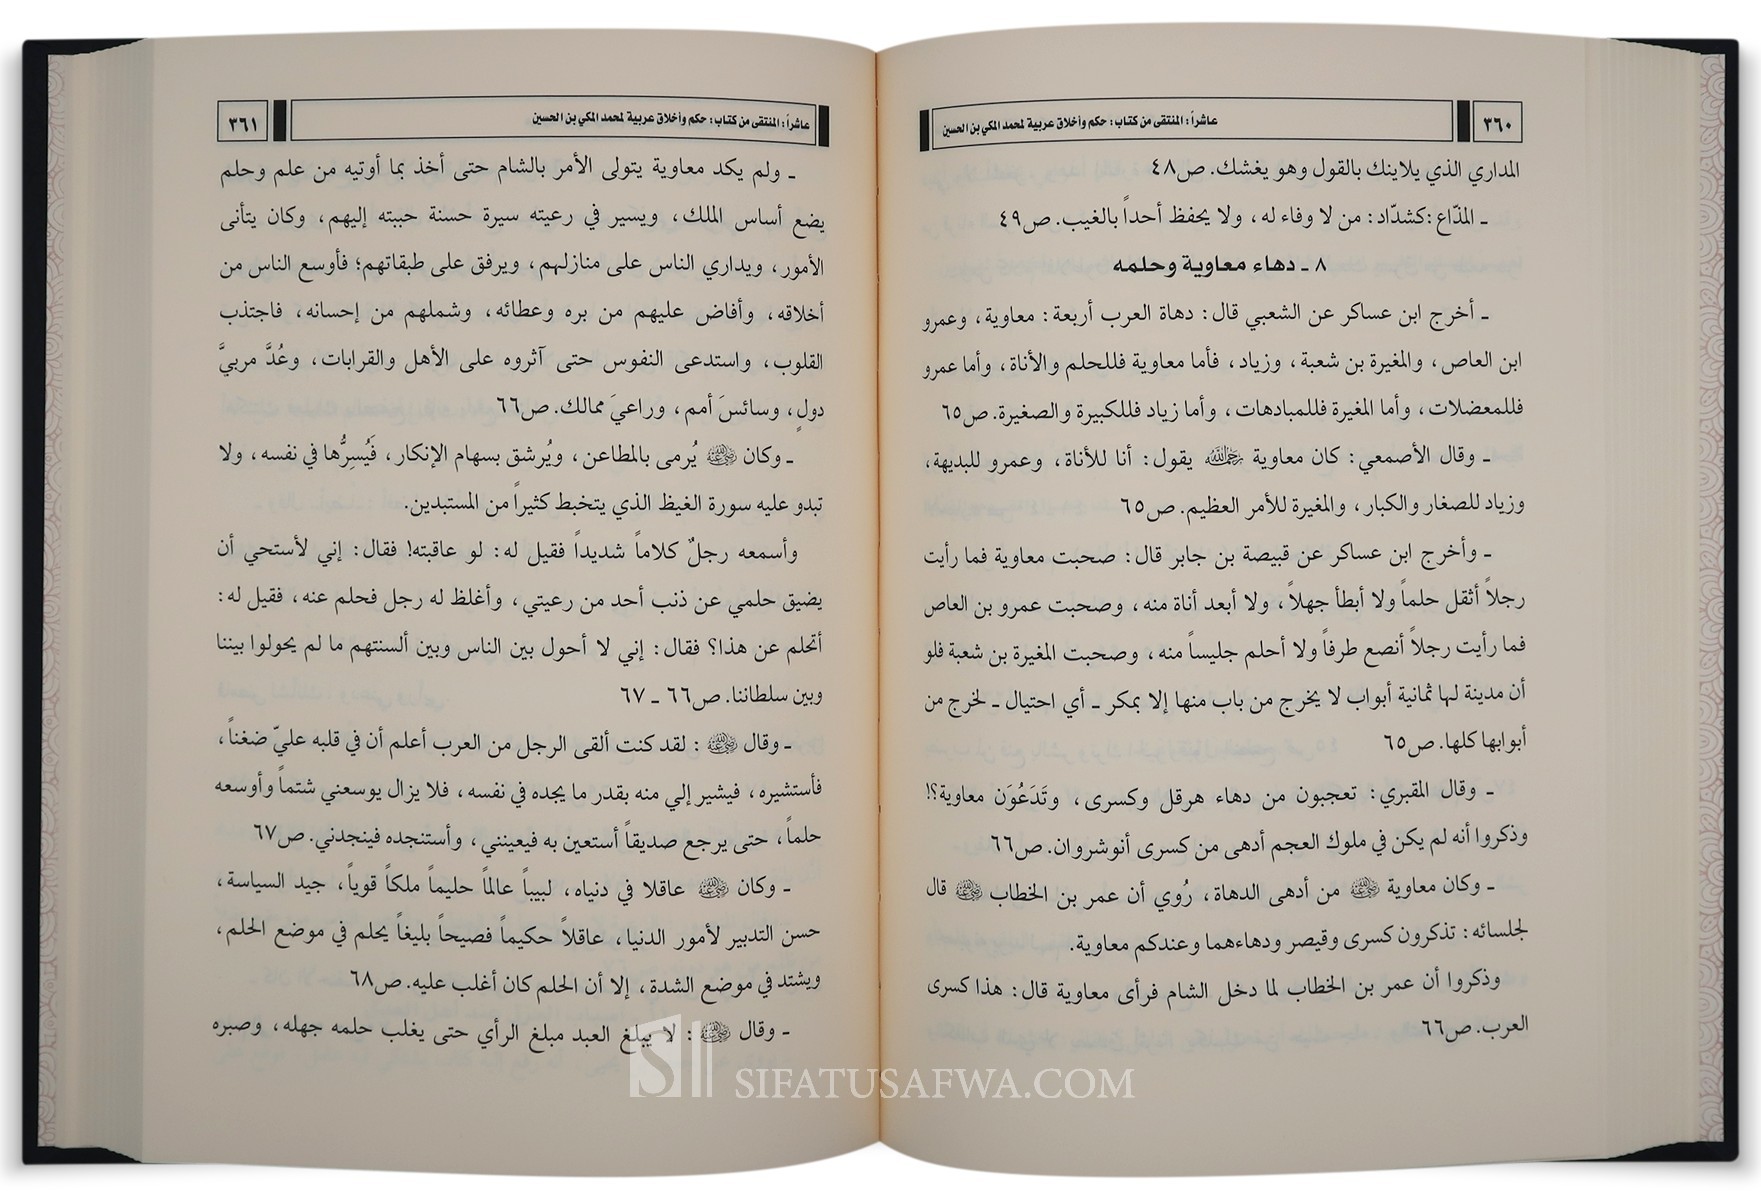 ٣٦٠
عاشراً: المنتقى من كتاب: حكم وأخلاق عربية لمحمد المكي بن الحسين
المداري الذي يلاينك بالقول وهو يغشك. ص٤٨
ـ المذّاع:كشدّاد: من لا وفاء له، ولا يحفظ أحداً بالغيب. ص٤٩
٨ ـ دهاء معاوية وحلمه
ـ أخرج ابن عساكر عن الشعبي قال: دهاة العرب أربعة: معاوية، وعمرو
ابن العاص، والمغيرة بن شعبة، وزياد، فأما معاوية فللحلم والأناة، وأما عمرو
فللمعضلات، وأما المغيرة فللمبادهات، وأما زياد فللكبيرة والصغيرة. ص٦٥
ـ وقال الأصمعي: كان معاوية رحمه الله يقول: أنا للأناة، وعمرو للبديهة،
وزياد للصغار والكبار، والمغيرة للأمر العظيم. ص٦٥
ـ وأخرج ابن عساكر عن قبيصة بن جابر قال: صحبت معاوية فما رأيت
رجلاً أثقل حلماً ولا أبطأ جهلاً، ولا أبعد أناة منه، وصحبت عمرو بن العاص
فما رأيت رجلاً أنصع طرفاً ولا أحلم جليساً منه، وصحبت المغيرة بن شعبة فلو
أن مدينة لها ثمانية أبواب لا يخرج من باب منها إلا بمكر ـ أي احتيال ـ لخرج من
أبوابها كلها. ص٦٥
ـ وقال المقبري: تعجبون من دهاء هرقل وكسرى، وتَدَعُوَن معاوية؟!
وذكروا أنه لم يكن في ملوك العجم أدهى من كسرى أنوشروان. ص٦٦
ـ وكان معاوية رضي الله عنه من أدهى الدهاة، رُوي أن عمر بن الخطاب رضي الله عنه قال
لجلسائه: تذكرون كسرى وقيصر ودهاءهما وعندكم معاوية.
وذكروا أن عمر بن الخطاب لما دخل الشام فرأى معاوية قال: هذا كسرى
العرب. ص٦٦
عاشراً: المنتقى من كتاب: حكم وأخلاق عربية لمحمد المكي بن الحسين
٣٦١
ـ ولم يكد معاوية يتولى الأمر بالشام حتى أخذ بما أوتيه من علم وحلم
يضع أساس الملك، ويسير في رعيته سيرة حسنة حببته إليهم، وكان يتأنى
الأمور، ويداري الناس على منازلهم، ويرفق على طبقاتهم؛ فأوسع الناس من
أخلاقه، وأفاض عليهم من بره وعطائه، وشملهم من إحسانه، فاجتذب
القلوب، واستدعى النفوس حتى آثروه على الأهل والقرابات، وعُدَّ مربيَّ
دولٍ، وسائسَ أمم، وراعيَ ممالك. ص٦٦
ـ وكان رضي الله عنه يُرمى بالمطاعن، ويُرشق بسهام الإنكار، فَيُسِرُّها في نفسه، ولا
تبدو عليه سورة الغيظ الذي يتخبط كثيراً من المستبدين.
وأسمعه رجلٌ كلاماً شديداً فقيل له: لو عاقبته! فقال: إني لأستحي أن
يضيق حلمي عن ذنب أحد من رعيتي، وأغلظ له رجل فحلم عنه، فقيل له:
أتحلم عن هذا؟ فقال: إني لا أحول بين الناس وبين ألسنتهم ما لم يحولوا بيننا
وبين سلطاننا. ص٦٦ ـ ٦٧
ـ وقال رضي الله عنه: لقد كنت ألقى الرجل من العرب أعلم أن في قلبه عليّ ضغناً،
فأستشيره، فيشير إلي منه بقدر ما يجده في نفسه، فلا يزال يوسعني شتماً وأوسعه
حلماً، حتى يرجع صديقاً أستعين به فيعينني، وأستنجده فينجدني. ص٦٧
ـ وكان رضي الله عنه عاقلا في دنياه، لبيباً عالماً حليماً ملكاً قوياً، جيد السياسة،
حسن التدبير لأمور الدنيا، عاقلاً حكيماً فصيحاً بليغاً يحلم في موضع الحلم،
ويشتد في موضع الشدة، إلا أن الحلم كان أغلب عليه. ص٦٨
ـ وقال رضي الله عنه: لا يبلغ العبد مبلغ الرأي حتى يغلب حلمه جهله، وصبره
SIFATUSAFWA.COM